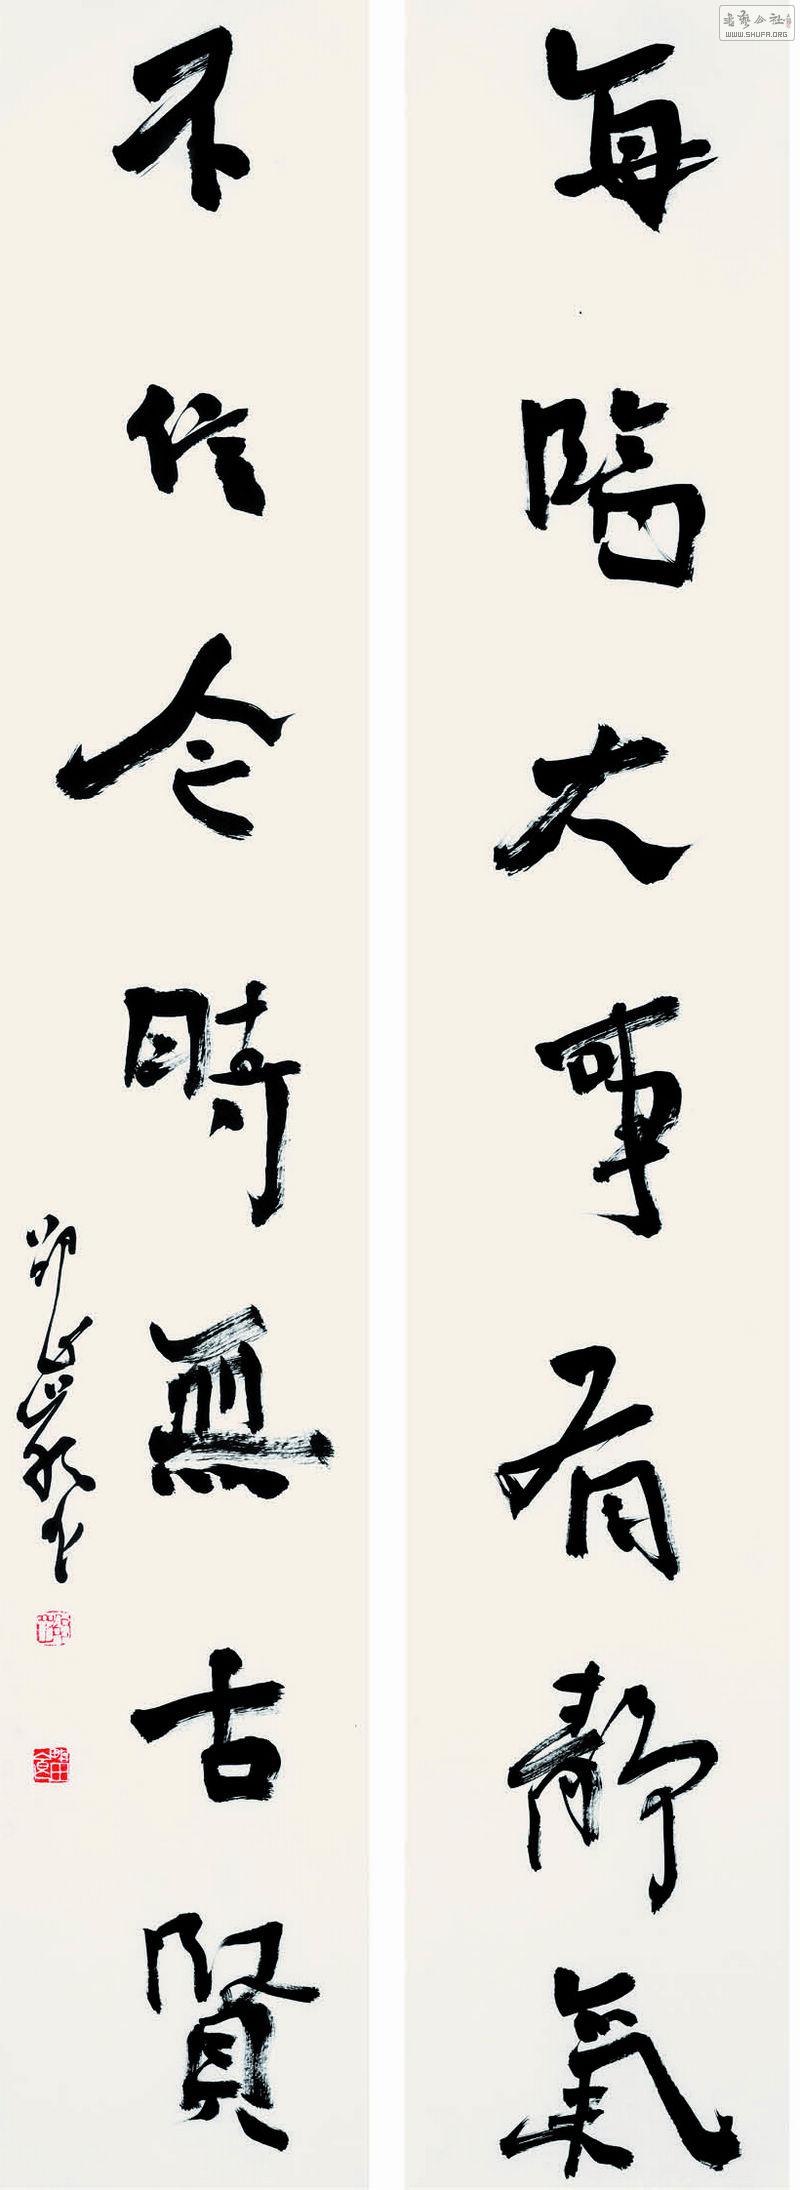 每臨大事有靜氣
不信今時無古賢
邵岩書
書藝公社
WWW.SHUFA.ORG